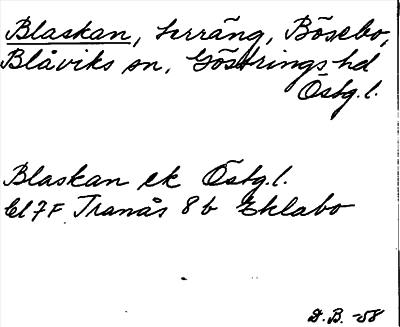 Blaskan, terräng, Bösebo,
Blåviks sn, Göstrings hd
Östg.l.
Blaskan ek Östg.l.
bl 7F Tranås 8b Eklabo
D.B. -58